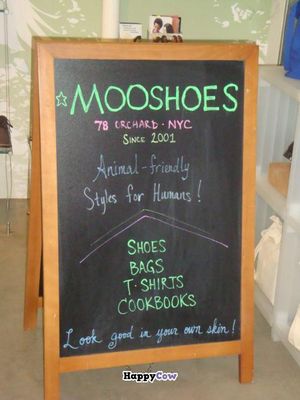 ☆MOOSHOES
78 ORCHARD · NYC
SINCE 2001
Animal-friendly
Styles for Humans!
SHOES
BAGS
T·SHIRTS
COOKBOOKS
Look good in your own skin!
HappyCow